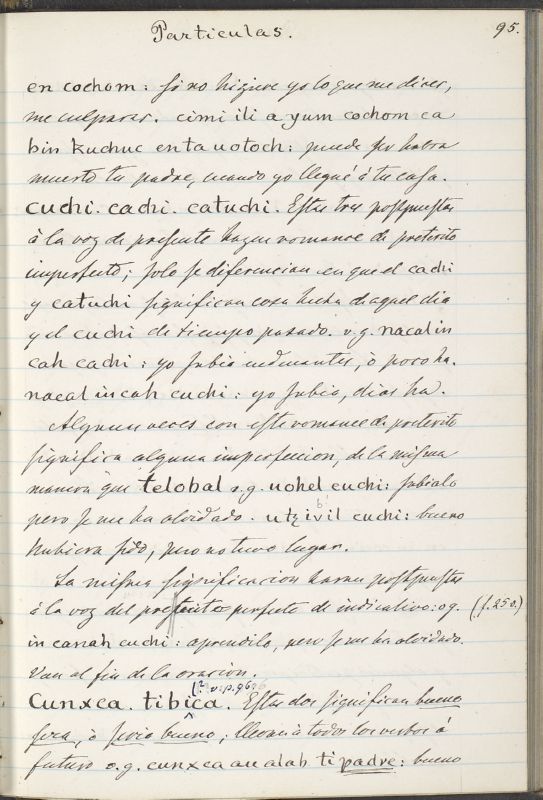 Particulas.
95.
en cochom: si no hiziere yo lo que me dices,
me culparas. cimi ili a yum cochom ca
bin kuchuc en ta uotoch: puede ser habra
muerto tu padre, cuando yo llegué á tu casa.
cuchi. cachi. catuchi. Estas tres postpuestas
á la voz de presente hazen romance de preterito
imperfecto; solo se diferencian en que el cachi
y catuchi significan cosa hecha de aquel dia
y el cuchi de tiempo pasado. v.g. nacal in
cah cachi: yo subia endenantes, ò poco ha.
nacal in cah cuchi: yo subia, dias ha.
Algunas veces con este romance de preterito
significa alguna imperfeccion, de la misma
manera que telobal v.g. uohel cuchi: sabialo
pero se me ha olvidado. utz ivil cuchi: bueno
b
hubiera sido, pero no tuvo lugar.
La misma significacion hazen postpuestas
á la voz del preterito perfecto de indicativo: v.g. (f. 250.)
in canah cuchi: aprendilo, pero se me ha olvidado.
Van al fin de la oracion.
(? v. p. 96
Cunxca. tibica. Estas dos significan bueno
fera, ò seria bueno; lleva à todos los verbos á
futuro v.g. cunxca au alab ti padre: bueno